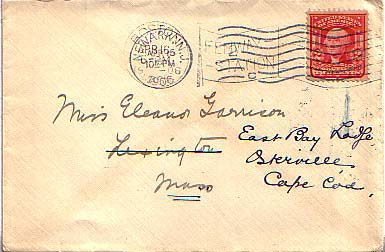 NEWARK, N.J.
1906
STATION
C
Miss Eleanor Garrison
Lexington
East Bay Lodge
Osterville
Mass
Cape Cod.